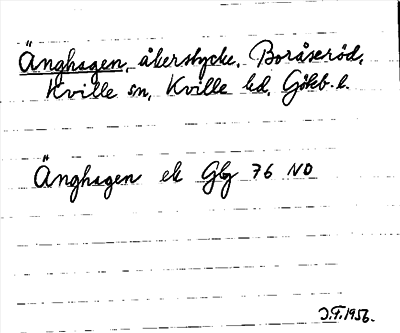 Änghagen, åkerstycke, Boråseröd,
Kville sn, Kville hd, Gbgb. l.
Änghagen ek Gbg 76 NO
J.F. 1956.